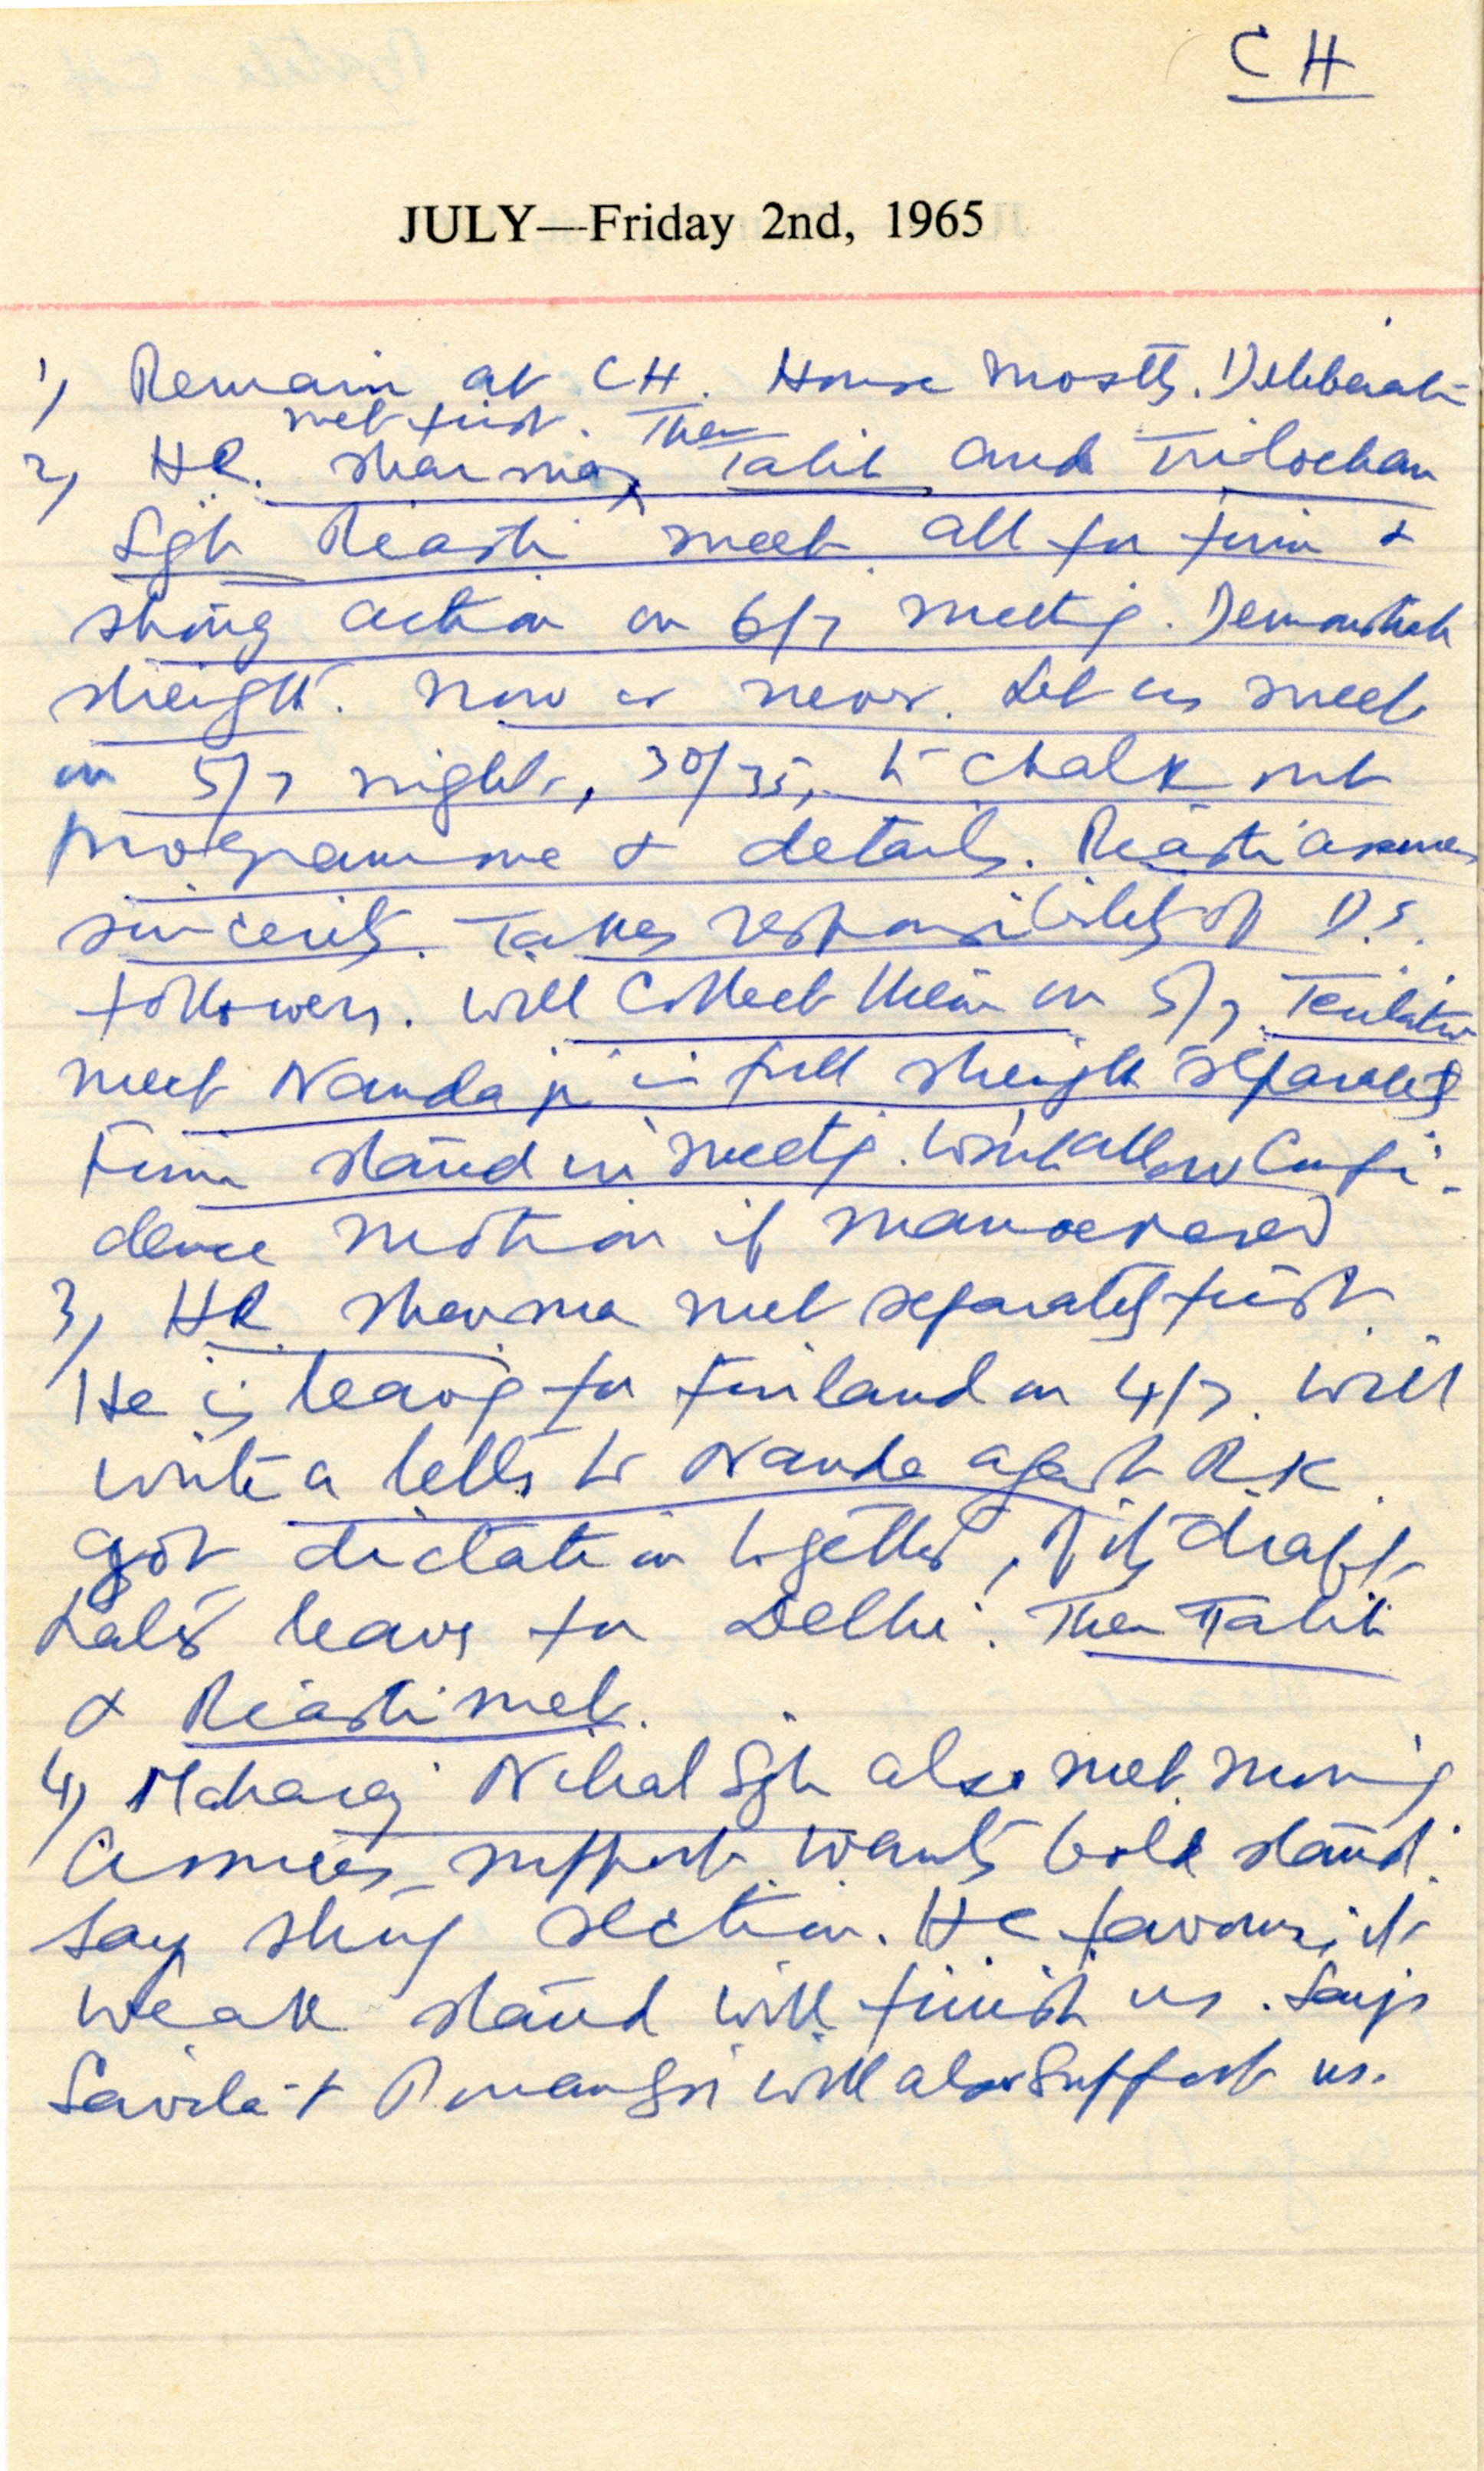 CH
JULY—Friday 2nd, 1965
1) Remain at CH. House mostly. Deliberati
met first. Then
2) HR. Sharma, Talib and Trilochan
Sgh Riasti meet. All for firm &
strong action on 6/7 meeting. Demonstrate
strength. Now or never. Let us meet
on 5/7 night, 30/35, to chalk out
programme & details. Riasti assures
sincerity. Takes responsibility of D.S.
followers. Will collect them on 5/7. Tentative
meet Nandaji in full strength separately
Firm stand in meetg. Wont allow Confi-
dence motion if manoevered
3) HR Sharma met separately first.
He is leavg for Finland on 4/7. Will
write a letter to Nanda agast R.K.
Got dictation together, of its draft.
Later leavs for Delhi. Then Talib
& Riasti met.
4) Maharaj Nihal Sgh also met morning
Assures support. Wants bold stand.
Say strong section. He favours it.
Weak stand will finish us. Says
will also support us.